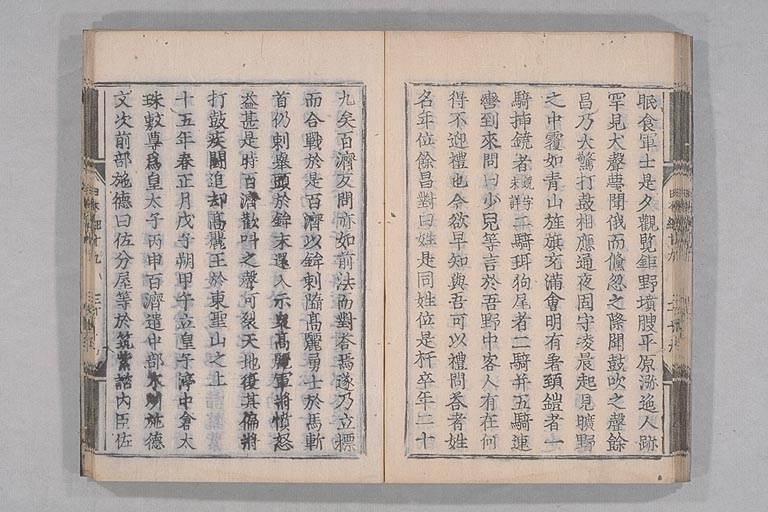 眠食軍士是夕觀覧鉅野墳腴平原濔迤人跡
罕見犬聲蔑聞俄而儵忽之際聞鼓吹之聲餘
昌乃大驚打鼓相應通夜固守凌晨起見曠野
之中覆如青山旌旗充滿會明有著頸鎧者一
騎挿鐃者鐃字未詳二騎珥豹尾者二騎并五騎連
轡到來問曰少兒等言於吾野中客人有在何
得不迎禮也今欲早知與吾可以禮問荅者姓
名年位餘昌對曰姓是同姓位是杆率年二十
九矣百濟反問亦如前法而對荅焉遂乃立標
而合戰於是百濟以鉾刺墮高麗勇士於馬斬
首仍刺擧頭於鉾末還入示衆高麗軍將憤怒
益甚是時百濟歡叫之聲可裂天地復其偏將
打鼓疾鬪追却高麗王於東聖山之上
十五年春正月戊子朔甲午立皇子渟中倉太
珠敷尊爲皇太子丙申百濟遣中部木刕施德
文次前部施德曰佐分屋等於筑紫諮内臣佐